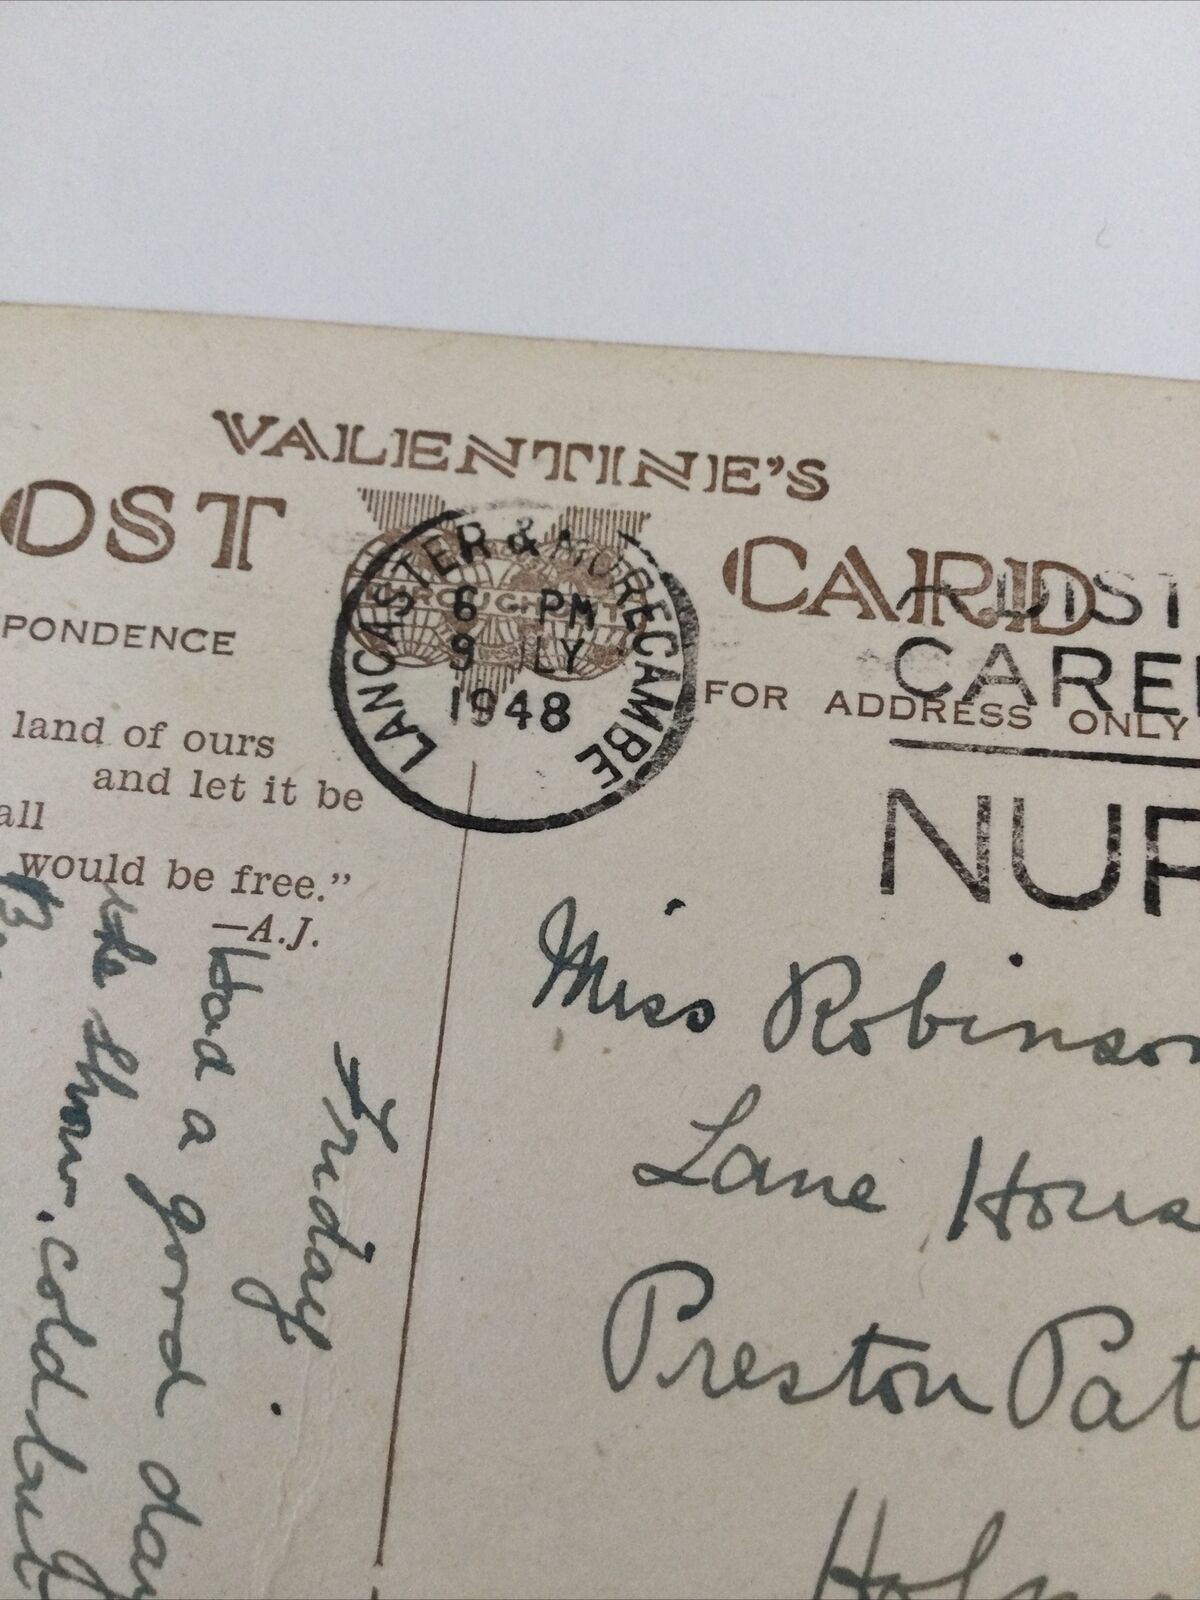 VALENTINE'S
OST CARD
LANCASTER & MORECAMBE
6 PM
9 JLY
1948
PONDENCE
FOR ADDRESS ONLY
CARE
NUR
land of ours
and let it be
all
would be free."
—A.J.
Friday.
Had a good day
the show. cold
Miss Robinson
Lane Hous
Preston Pat
Holm